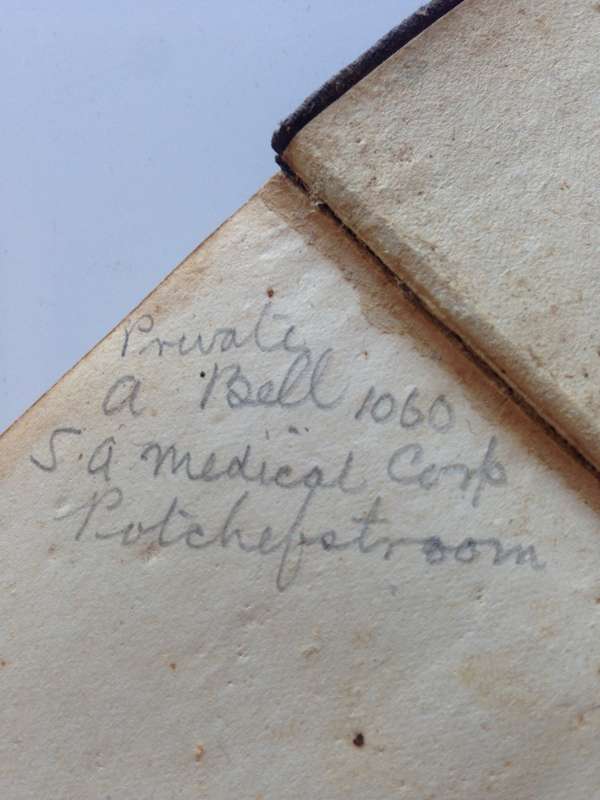 Private
A. Bell 1060
S. A Medical Corp
Potchefstroom